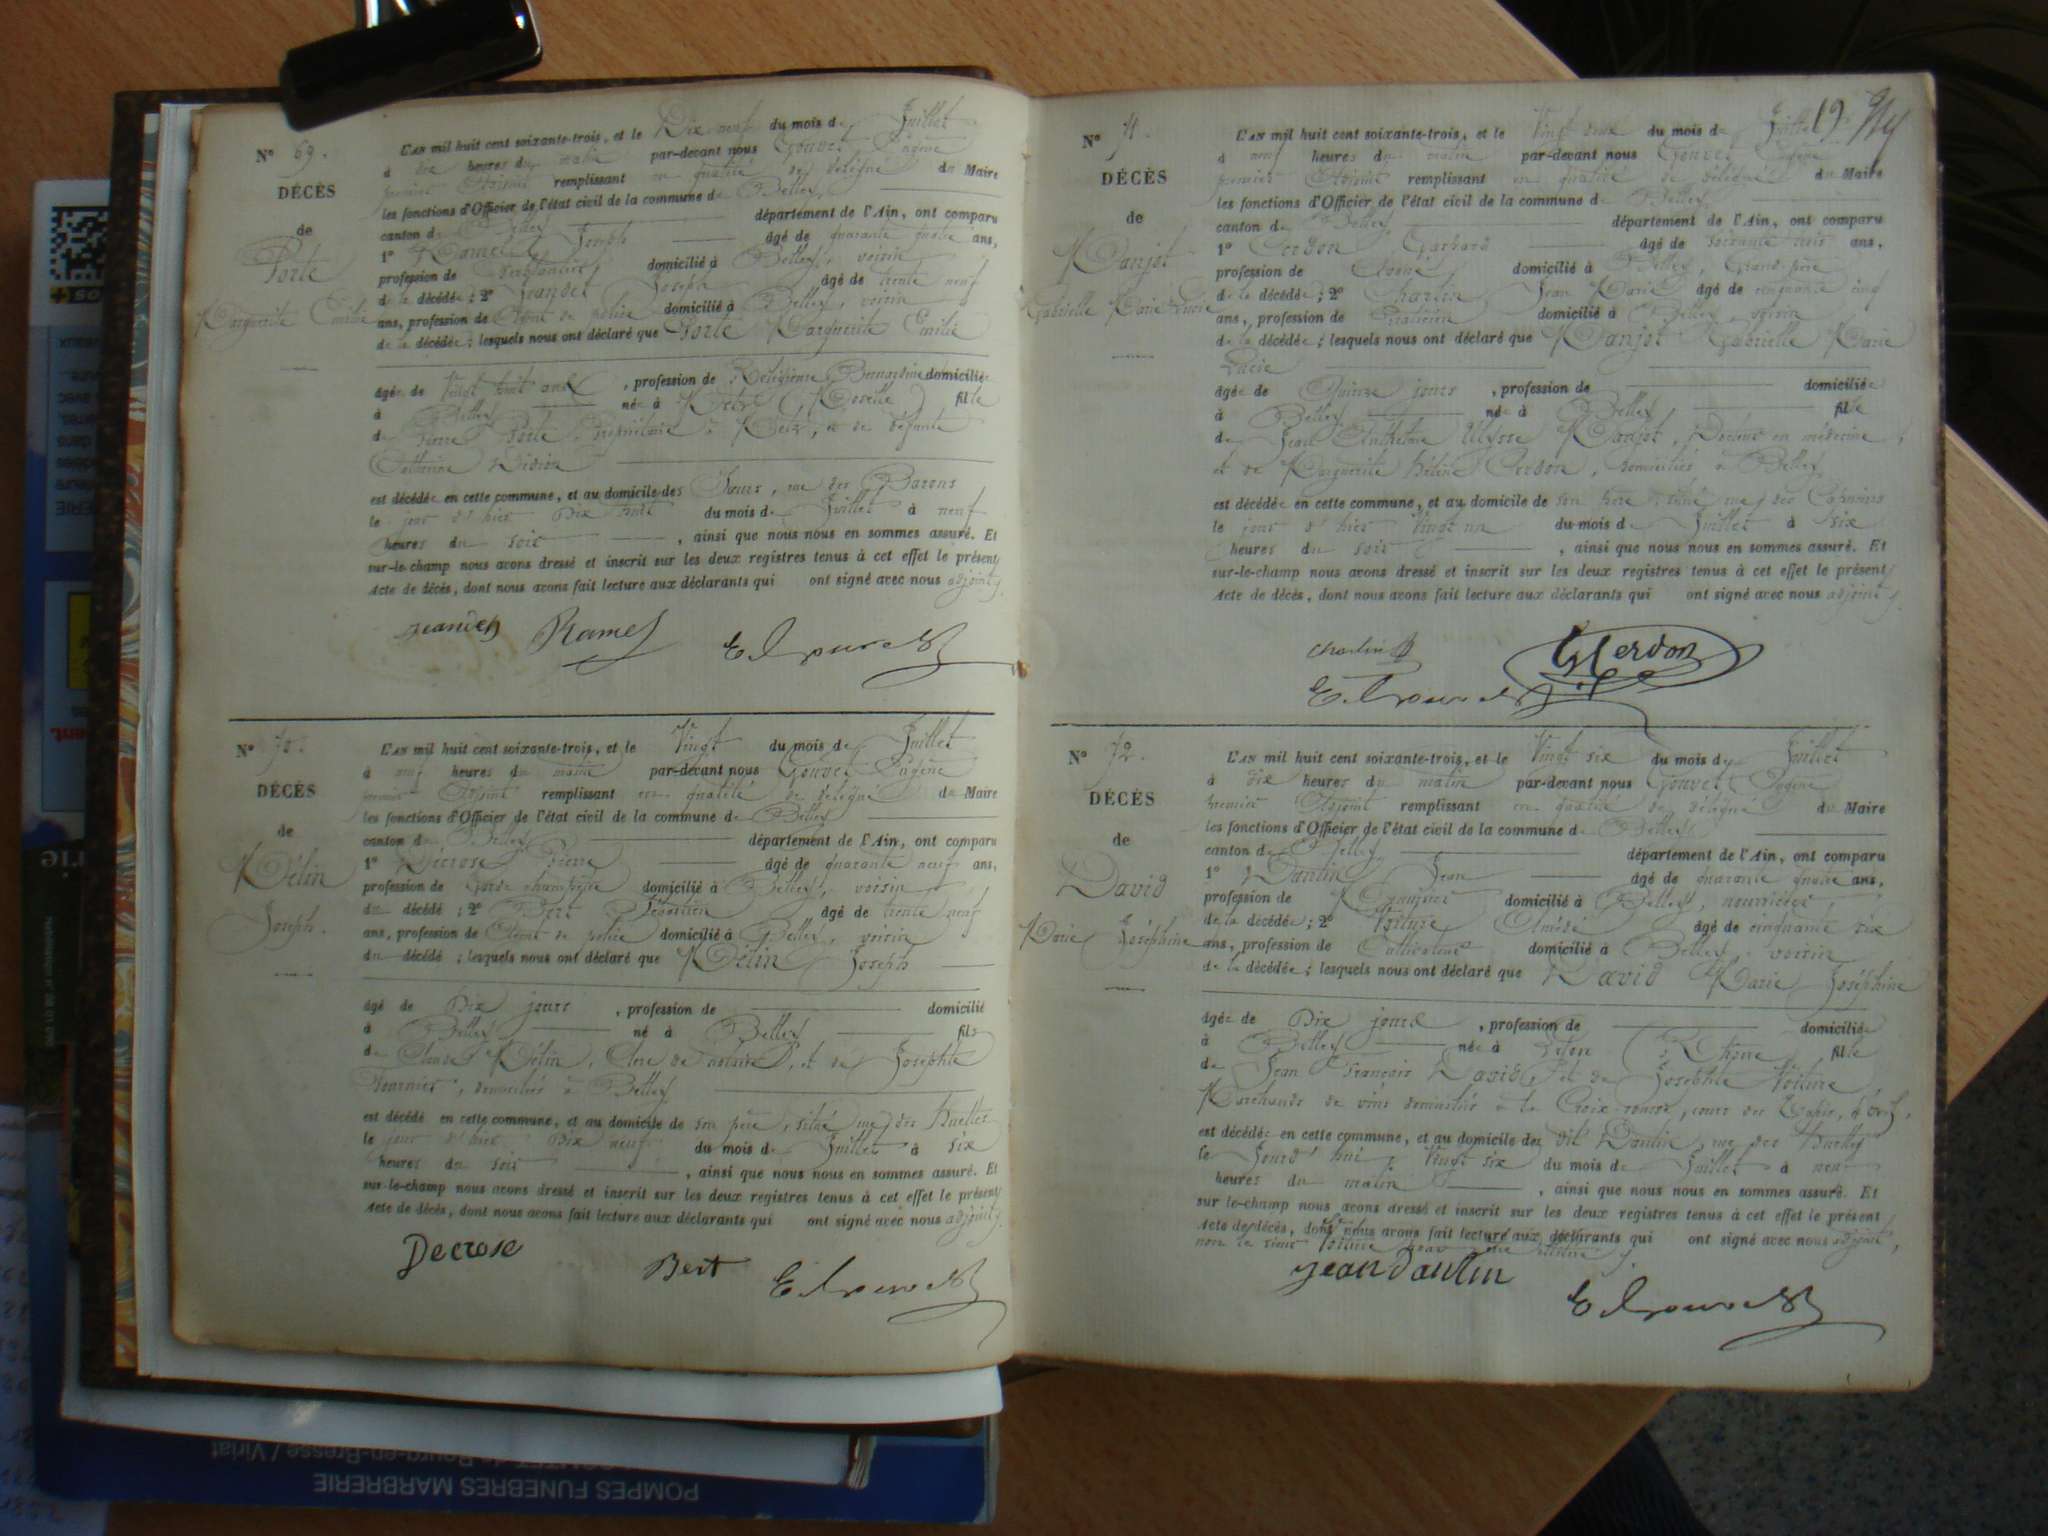 N° 69.
DÉCÈS
de
Porte
Marguerite Emilie
L'AN mil huit cent soixante-trois, et le Dix neuf du mois de Juillet
à dix heures du matin par-devant nous Gouvet Eugène
premier Adjoint remplissant en qualité de délégué du Maire
les fonctions d'Officier de l'état civil de la commune de Belley
canton de Belley département de l'Ain, ont comparu
1° Ramel Joseph âgé de quarante quatre ans,
profession de domicilié à Belley, voisin
de la décédée ; 2° Jeandet Joseph âgé de trente neuf
ans, profession de Agent de police domicilié à Belley, voisin
de la décédée ; lesquels nous ont déclaré que Porte Marguerite Emilie
âgée de Vingt huit ans, profession de Religieuse Bernardine domiciliée
à Belley née à Metz (Moselle) fille
de Pierre Porte, propriétaire à Metz, et de défunte
Catherine Didion
est décédée en cette commune, et au domicile des Sœurs, rue des Barons
le jour d'hier Dix huit du mois de Juillet à neuf
heures du soir, ainsi que nous nous en sommes assuré. Et
sur-le-champ nous avons dressé et inscrit sur les deux registres tenus à cet effet le présent
Acte de décès, dont nous avons fait lecture aux déclarants qui ont signé avec nous adjoint.
jeandet Ramel E. Gouvet
N° 70.
DÉCÈS
de
Mélin
Joseph.
L'AN mil huit cent soixante-trois, et le Vingt du mois de Juillet
à neuf heures du matin par-devant nous Gouvet Eugène
premier Adjoint remplissant en qualité de délégué du Maire
les fonctions d'Officier de l'état civil de la commune de Belley
canton de Belley département de l'Ain, ont comparu
1° Décrose Pierre âgé de quarante neuf ans,
profession de Garde champêtre domicilié à Belley, voisin
du décédé ; 2° Bert Sébastien âgé de trente neuf
ans, profession de Agent de police domicilié à Belley, voisin
du décédé ; lesquels nous ont déclaré que Mélin Joseph
âgé de Dix jours, profession de domicilié
à Belley né à Belley fils
de Claude Mélin, Clerc de notaire, et de Josephte
Fournier, domiciliés à Belley
est décédé en cette commune, et au domicile de son père, situé rue des Huelles
le jour d'hier Dix neuf du mois de Juillet à six
heures du soir, ainsi que nous nous en sommes assuré. Et
sur-le-champ nous avons dressé et inscrit sur les deux registres tenus à cet effet le présent
Acte de décès, dont nous avons fait lecture aux déclarants qui ont signé avec nous adjoint.
Decrose Bert E. Gouvet
19
N° 71.
DÉCÈS
de
Manjot
Gabrielle Marie Lucie
L'AN mil huit cent soixante-trois, et le Vingt deux du mois de Juillet
à neuf heures du matin par-devant nous Gouvet Eugène
premier Adjoint remplissant en qualité de délégué du Maire
les fonctions d'Officier de l'état civil de la commune de Belley
canton de Belley département de l'Ain, ont comparu
1° Cerdon Gaspard âgé de soixante trois ans,
profession de Avoué domicilié à Belley, Grand-père
de la décédée ; 2° Charlin Jean Marie âgé de cinquante cinq
ans, profession de Praticien domicilié à Belley, voisin
de la décédée ; lesquels nous ont déclaré que Manjot Gabrielle Marie
Lucie
âgée de Quinze jours, profession de domiciliée
à Belley née à Belley fille
de Jean Anthelme Ulysse Manjot, Docteur en médecine,
et de Marguerite Hélène Cerdon, domiciliés à Belley
est décédée en cette commune, et au domicile de son père, situé rue des Capucins
le jour d'hier Vingt un du mois de Juillet à six
heures du soir, ainsi que nous nous en sommes assuré. Et
sur-le-champ nous avons dressé et inscrit sur les deux registres tenus à cet effet le présent
Acte de décès, dont nous avons fait lecture aux déclarants qui ont signé avec nous adjoint.
Charlin G Cerdon
E. Gouvet
N° 72.
DÉCÈS
de
David
Marie Joséphine
L'AN mil huit cent soixante-trois, et le Vingt six du mois de Juillet
à dix heures du matin par-devant nous Gouvet Eugène
premier Adjoint remplissant en qualité de délégué du Maire
les fonctions d'Officier de l'état civil de la commune de Belley
canton de Belley département de l'Ain, ont comparu
1° Dantin Jean âgé de quarante quatre ans,
profession de domicilié à Belley, nourricier
de la décédée ; 2° Voiture Amédé âgé de cinquante six
ans, profession de Cultivateur domicilié à Belley, voisin
de la décédée ; lesquels nous ont déclaré que David Marie Joséphine
âgée de Dix jours, profession de domiciliée
à Belley née à Lyon (Rhône) fille
de Jean François David, et de Josephte Voiture,
Marchands de vins domiciliés à la Croix-rousse, cours des Tapis,
est décédée en cette commune, et au domicile du dit Dantin, rue des Huelles
le Jourd'hui Vingt six du mois de Juillet à neuf
heures du matin, ainsi que nous nous en sommes assuré. Et
sur le-champ nous avons dressé et inscrit sur les deux registres tenus à cet effet le présent
Acte de décès, dont nous avons fait lecture aux déclarants qui ont signé avec nous adjoint,
non le sieur Voiture pour
jean dantin E. Gouvet
POMPES FUNEBRES MARBRERIE
de Bourg-en-Bresse / Viriat